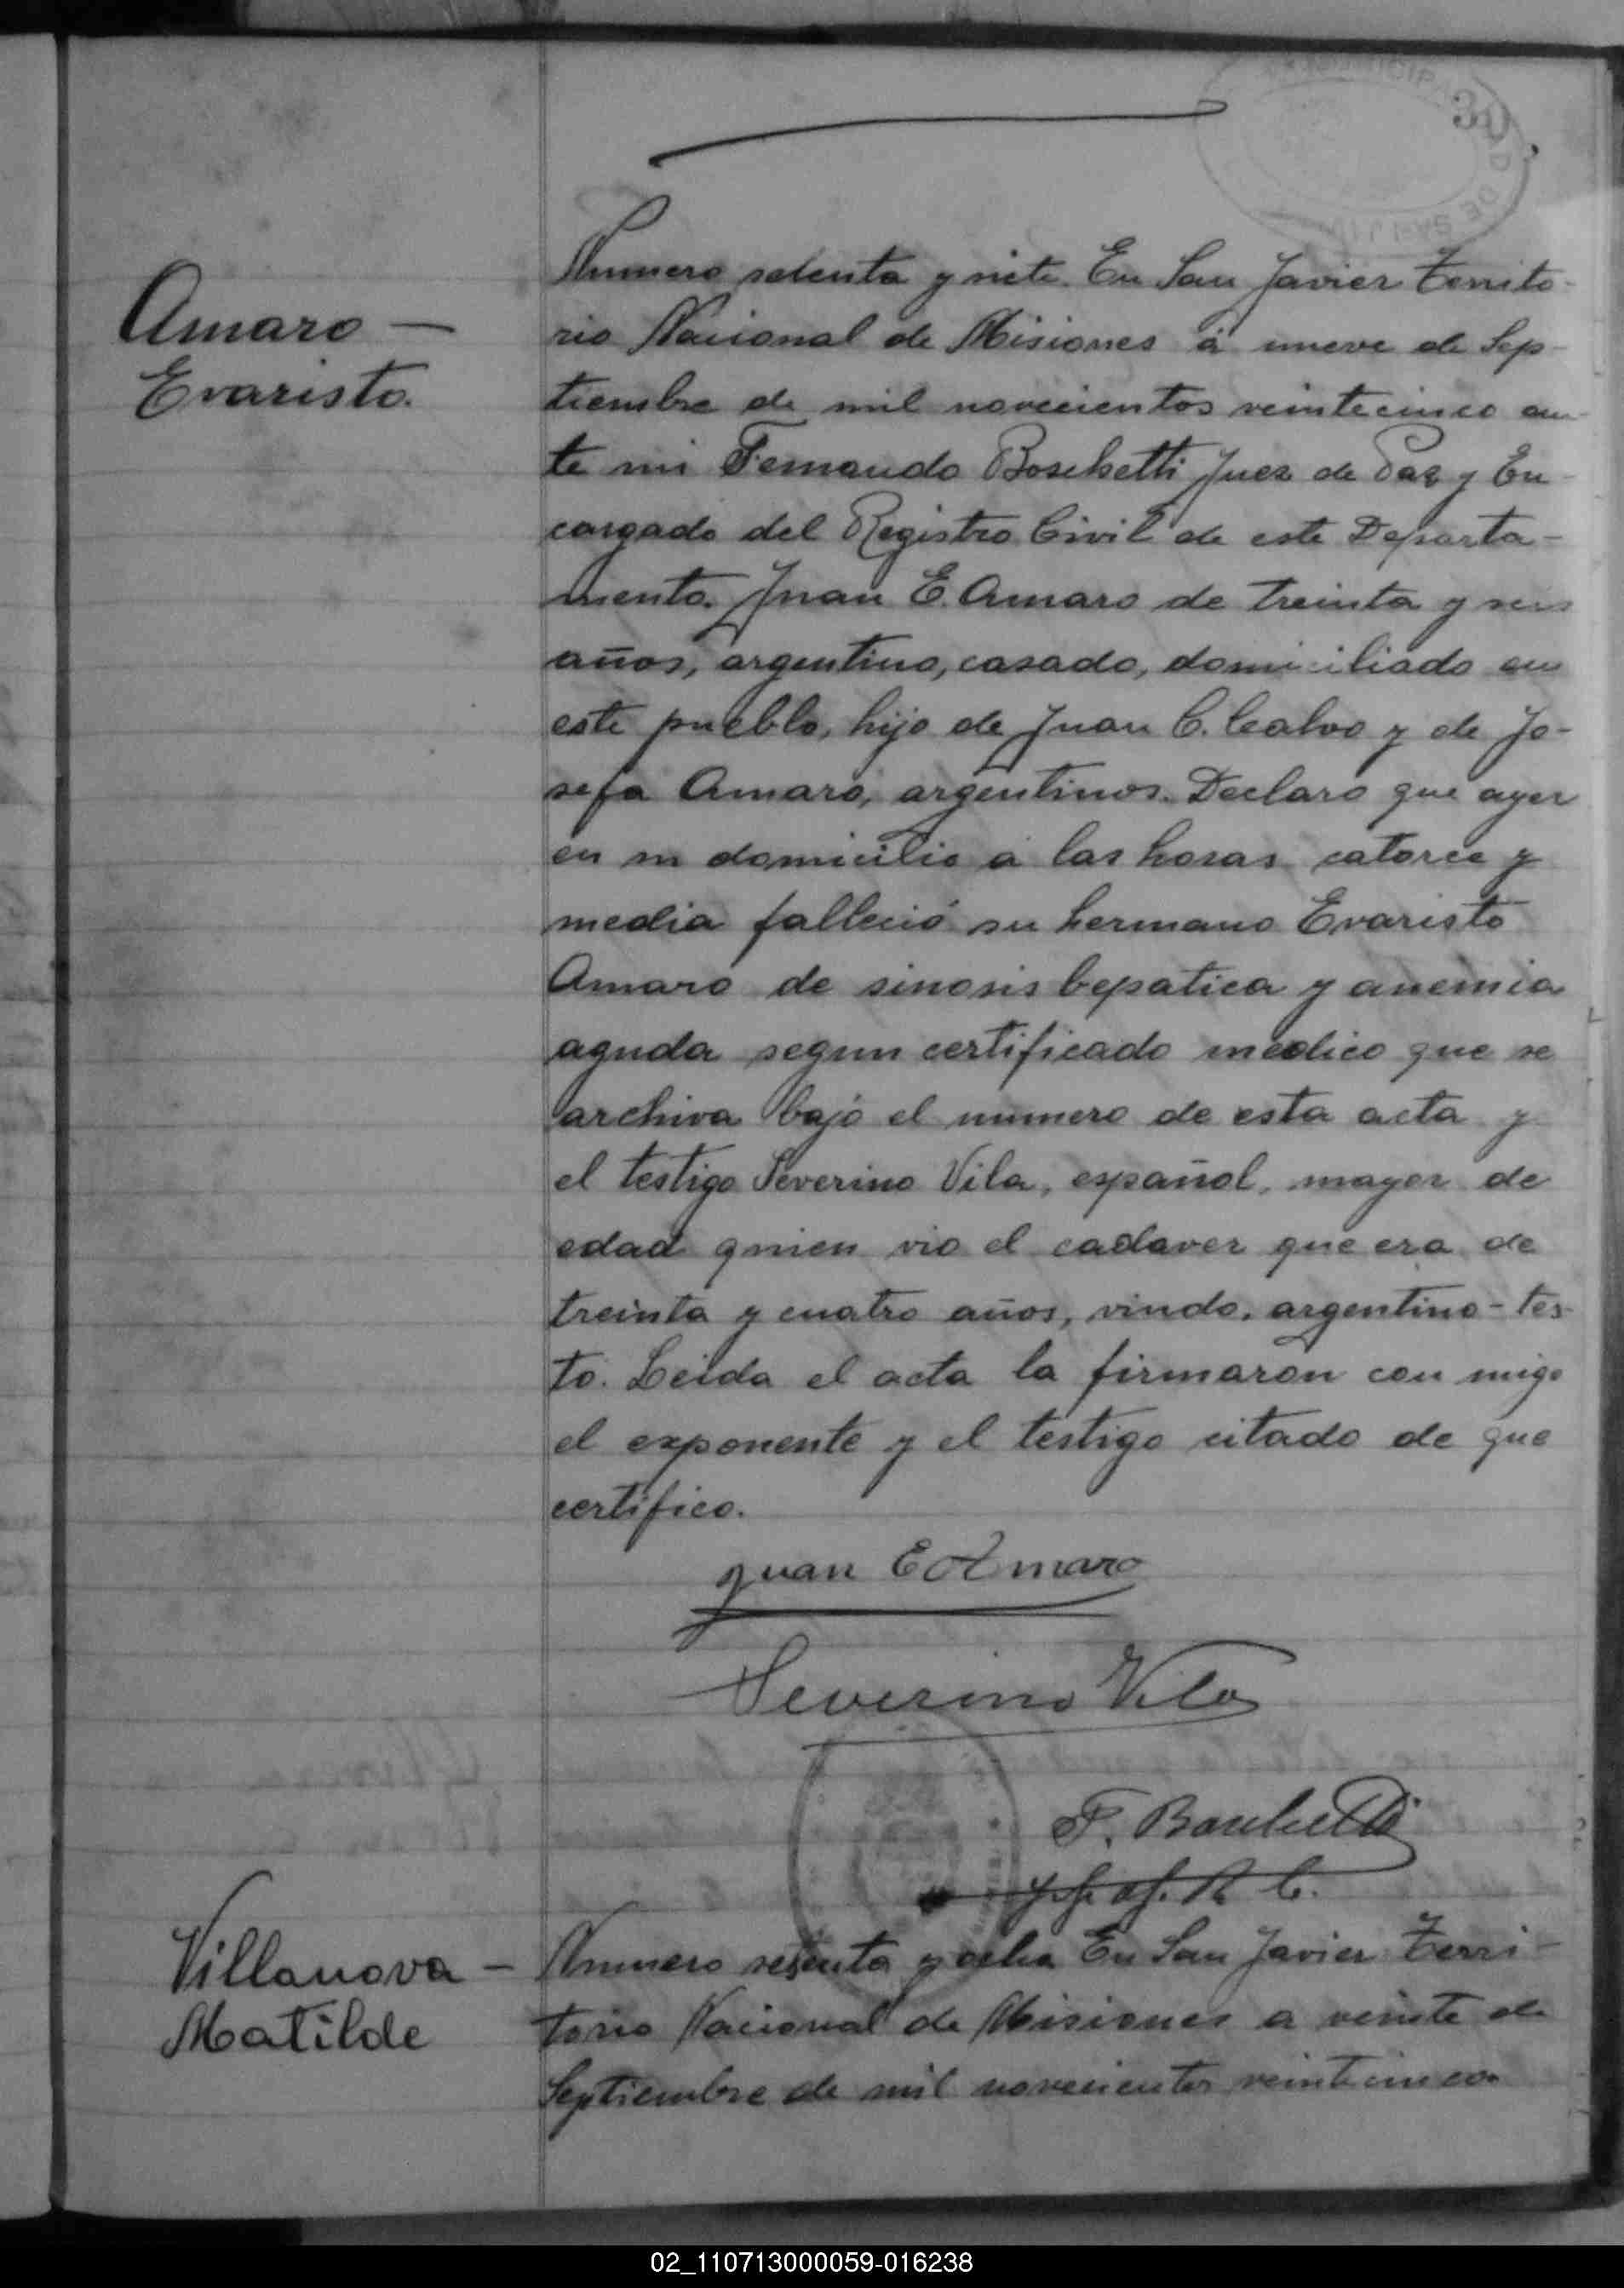 30
Amaro —
Evaristo.
Numero setenta y siete. En San Javier Territo-
rio Nacional de Misiones á nueve de Sep-
tiembre de mil novecientos veintecinco an-
te mi Fernando Boschetti Juez de Paz y En-
cargado del Registro Civil de este Departa-
mento. Juan E. Amaro de treinta y seis
años, argentino, casado, domiciliado en
este pueblo, hijo de Juan C. Calvo y de Jo-
sefa Amaro, argentinos. Declaro que ayer
en su domicilio a las horas catorce y
media falleció su hermano Evaristo
Amaro de sinosis hepatica y anemia
aguda segun certificado medico que se
archiva bajo el numero de esta acta y
el testigo Severino Vila, español, mayor de
edad quien vio el cadaver que era de
treinta y cuatro años, viudo, argentino - tes-
to. Leida el acta la firmaron con migo
el exponente y el testigo citado de que
certifico.
Juan E Amaro
Severino Vila
F. Boschetti
Villanova —
Matilde
Numero setenta y ocho En San Javier Terri-
torio Nacional de Misiones a veinte de
Septiembre de mil novecientos veintecinco
02_110713000059-016238